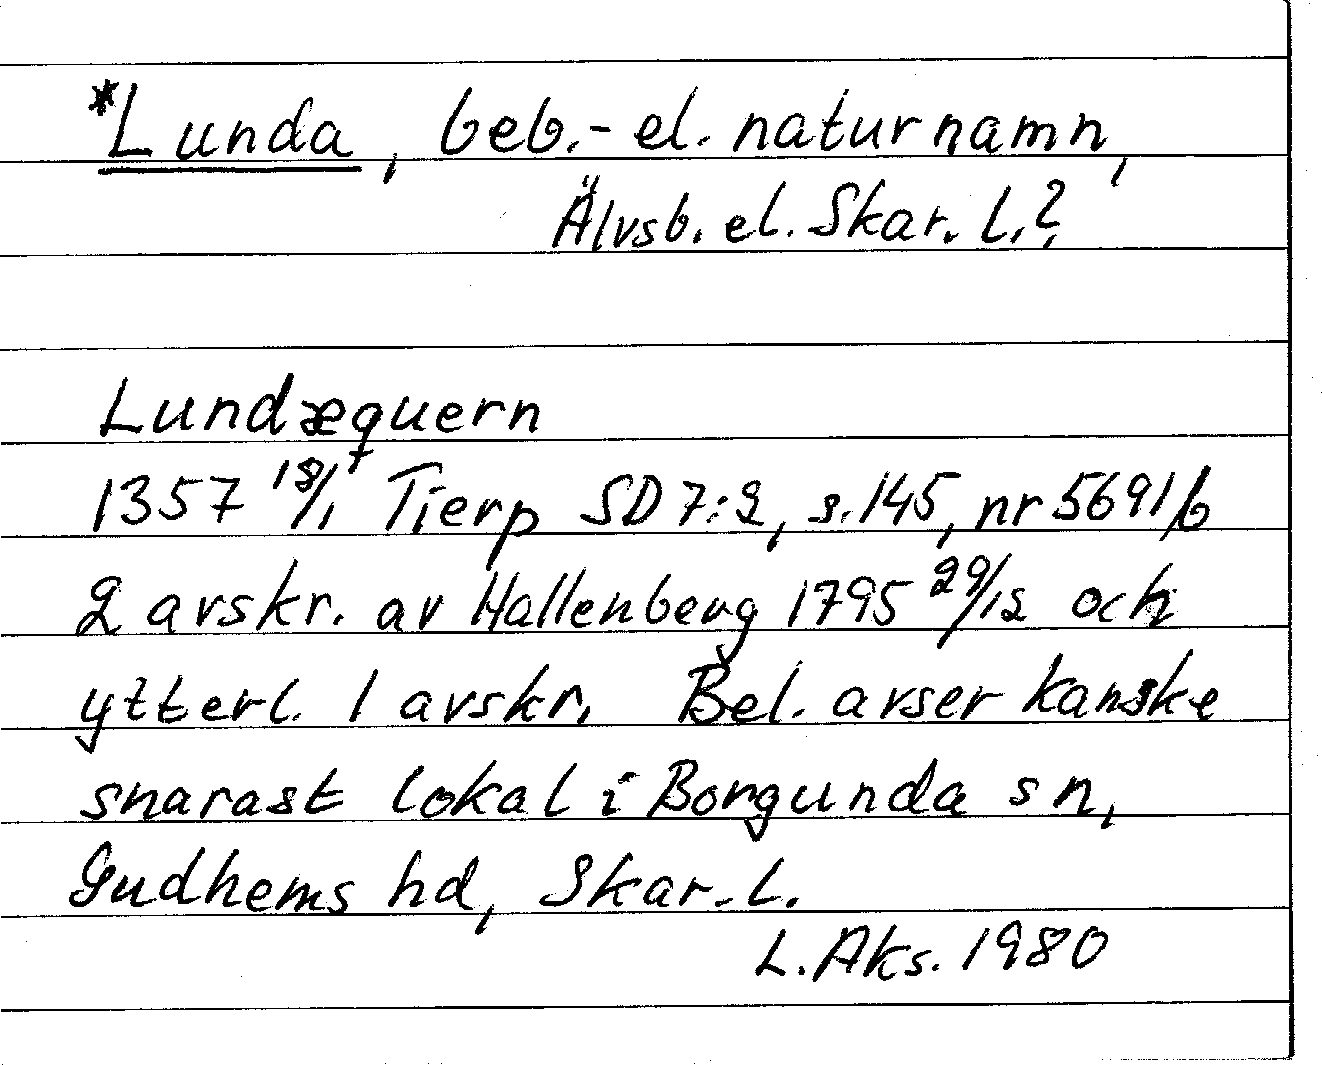 *Lunda, beb.- el. naturnamn,
Älvsb. el. Skar. l.?
Lundæquern
1357 18/1 Tierp SD 7:2, s. 145, nr 5691/b
2 avskr. av Hallenberg 1795 29/12 och
ytterl. 1 avskr. Bel. avser kanske
snarast lokal i Borgunda sn,
Gudhems hd, Skar. l.
L. Aks. 1980